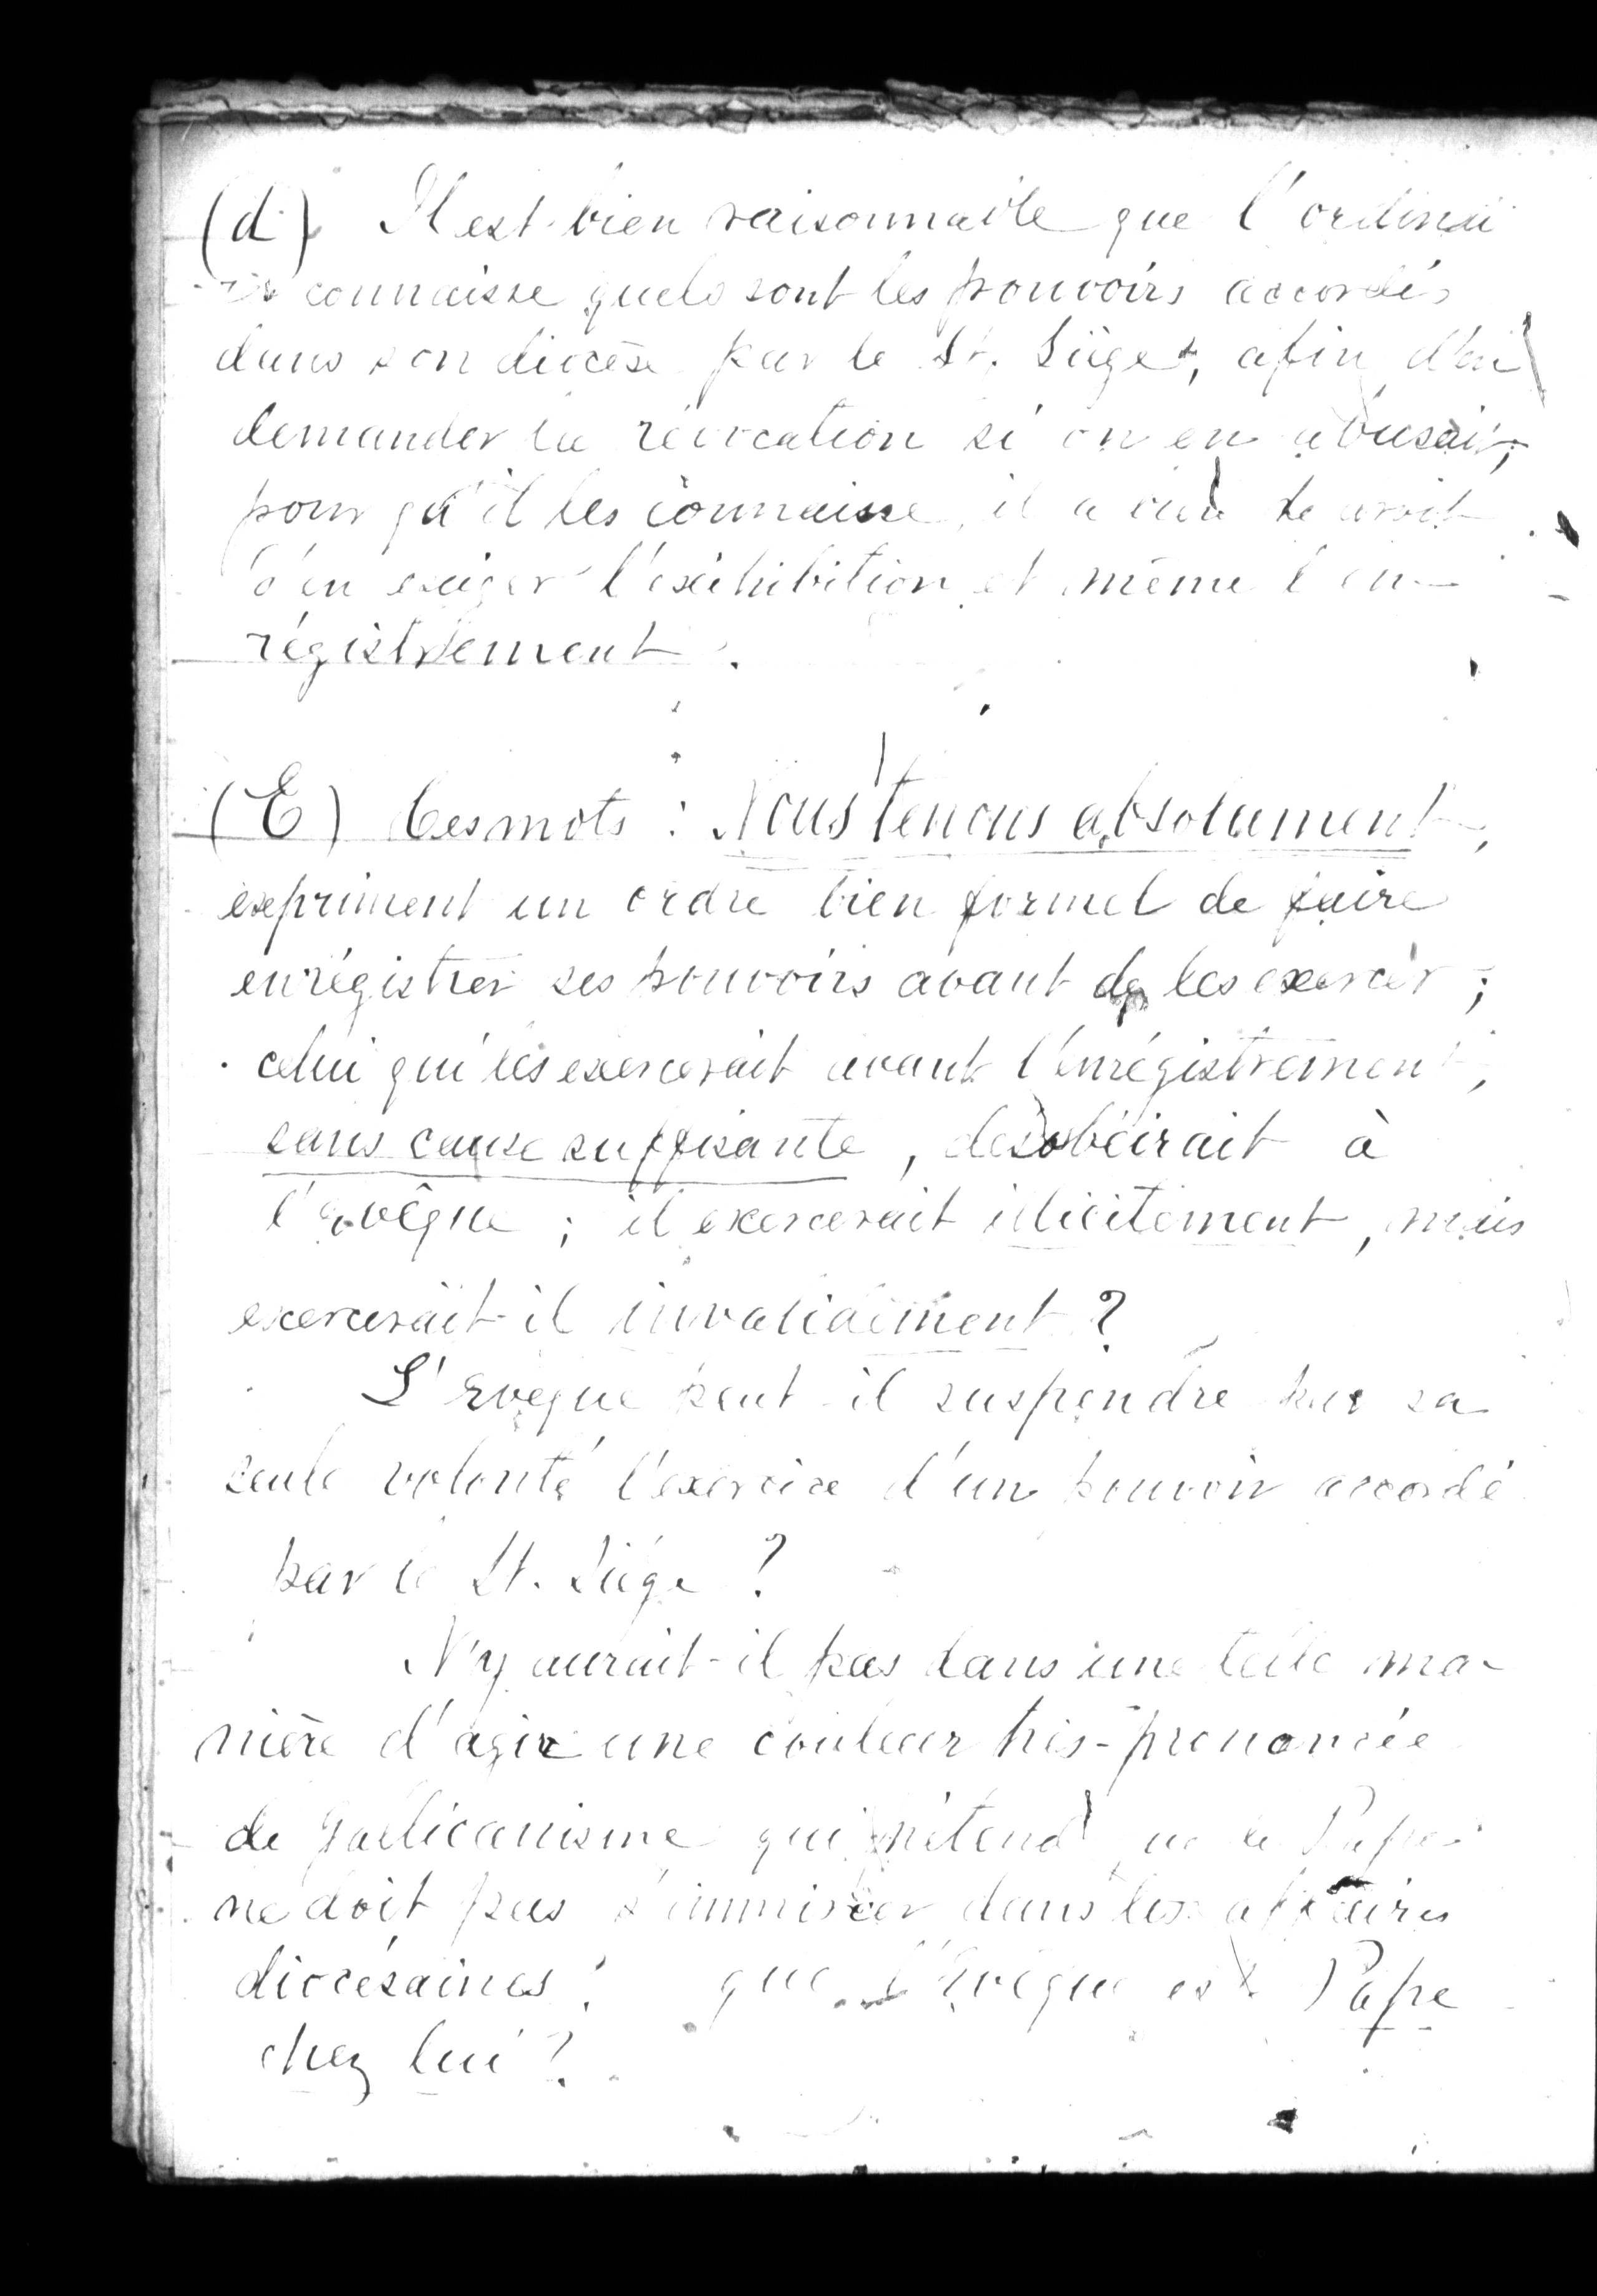 (d) Il est bien raisonnable que l'ordinai
re connaisse quels sont les pouvoirs accordés
dans son diocèse par le St. Siège, afin d'en
demander la révocation si on en abusait,
pour qu'il les connaisse, il a le droit
d'en exiger l'exhibition et même l'en-
régistrement.
(E) Ces mots : Nous tenons absolument,
expriment un ordre bien formel de faire
enrégistrer ses pouvoirs avant de les exercer ;
celui qui les exercerait avant l'enrégistrement,
sans cause suffisante, désobéirait à
l'évêque ; il exercerait illicitement, mais
exercerait-il invalidement ?
L'Evêque peut-il suspendre par sa
seule volonté l'exercice d'un pouvoir accordé
par le St. Siége ?
N'y aurait-il pas dans une telle ma-
nière d'agir une couleur très-prononcée
de Gallicanisme qui prétend que le Pape
ne doit pas s'immiscer dans les affaires
diocésaines ? que l'Evêque est Pape
chez lui ?